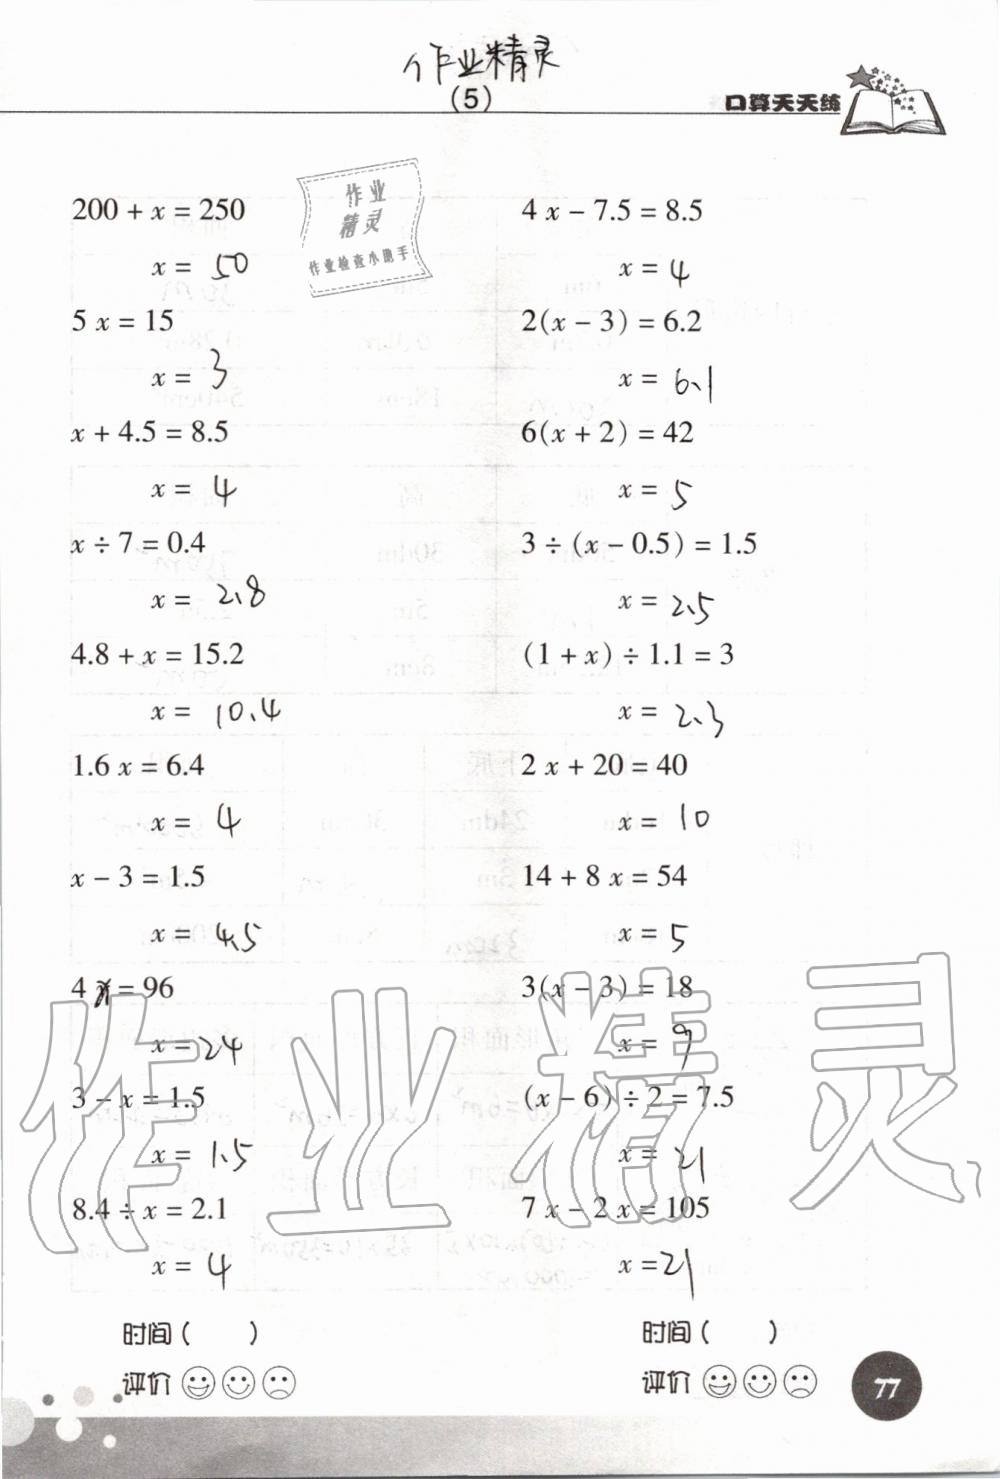 作业精灵
(5)
口算天天练
作业
精灵
作业检查小助手
200 + x = 250
x = 50
5 x = 15
x = 3
x + 4.5 = 8.5
x = 4
x ÷ 7 = 0.4
x = 2.8
4.8 + x = 15.2
x = 10.4
1.6 x = 6.4
x = 4
x − 3 = 1.5
x = 4.5
4 x = 96
x = 24
3 − x = 1.5
x = 1.5
8.4 ÷ x = 2.1
x = 4
时间 ( )
评价
4 x − 7.5 = 8.5
x = 4
2(x − 3) = 6.2
x = 6.1
6(x + 2) = 42
x = 5
3 ÷ (x − 0.5) = 1.5
x = 2.5
(1 + x) ÷ 1.1 = 3
x = 2.3
2 x + 20 = 40
x = 10
14 + 8 x = 54
x = 5
3(x − 3) = 18
x = 9
(x − 6) ÷ 2 = 7.5
x = 21
7 x − 2 x = 105
x = 21
时间 ( )
评价
77
作业精灵